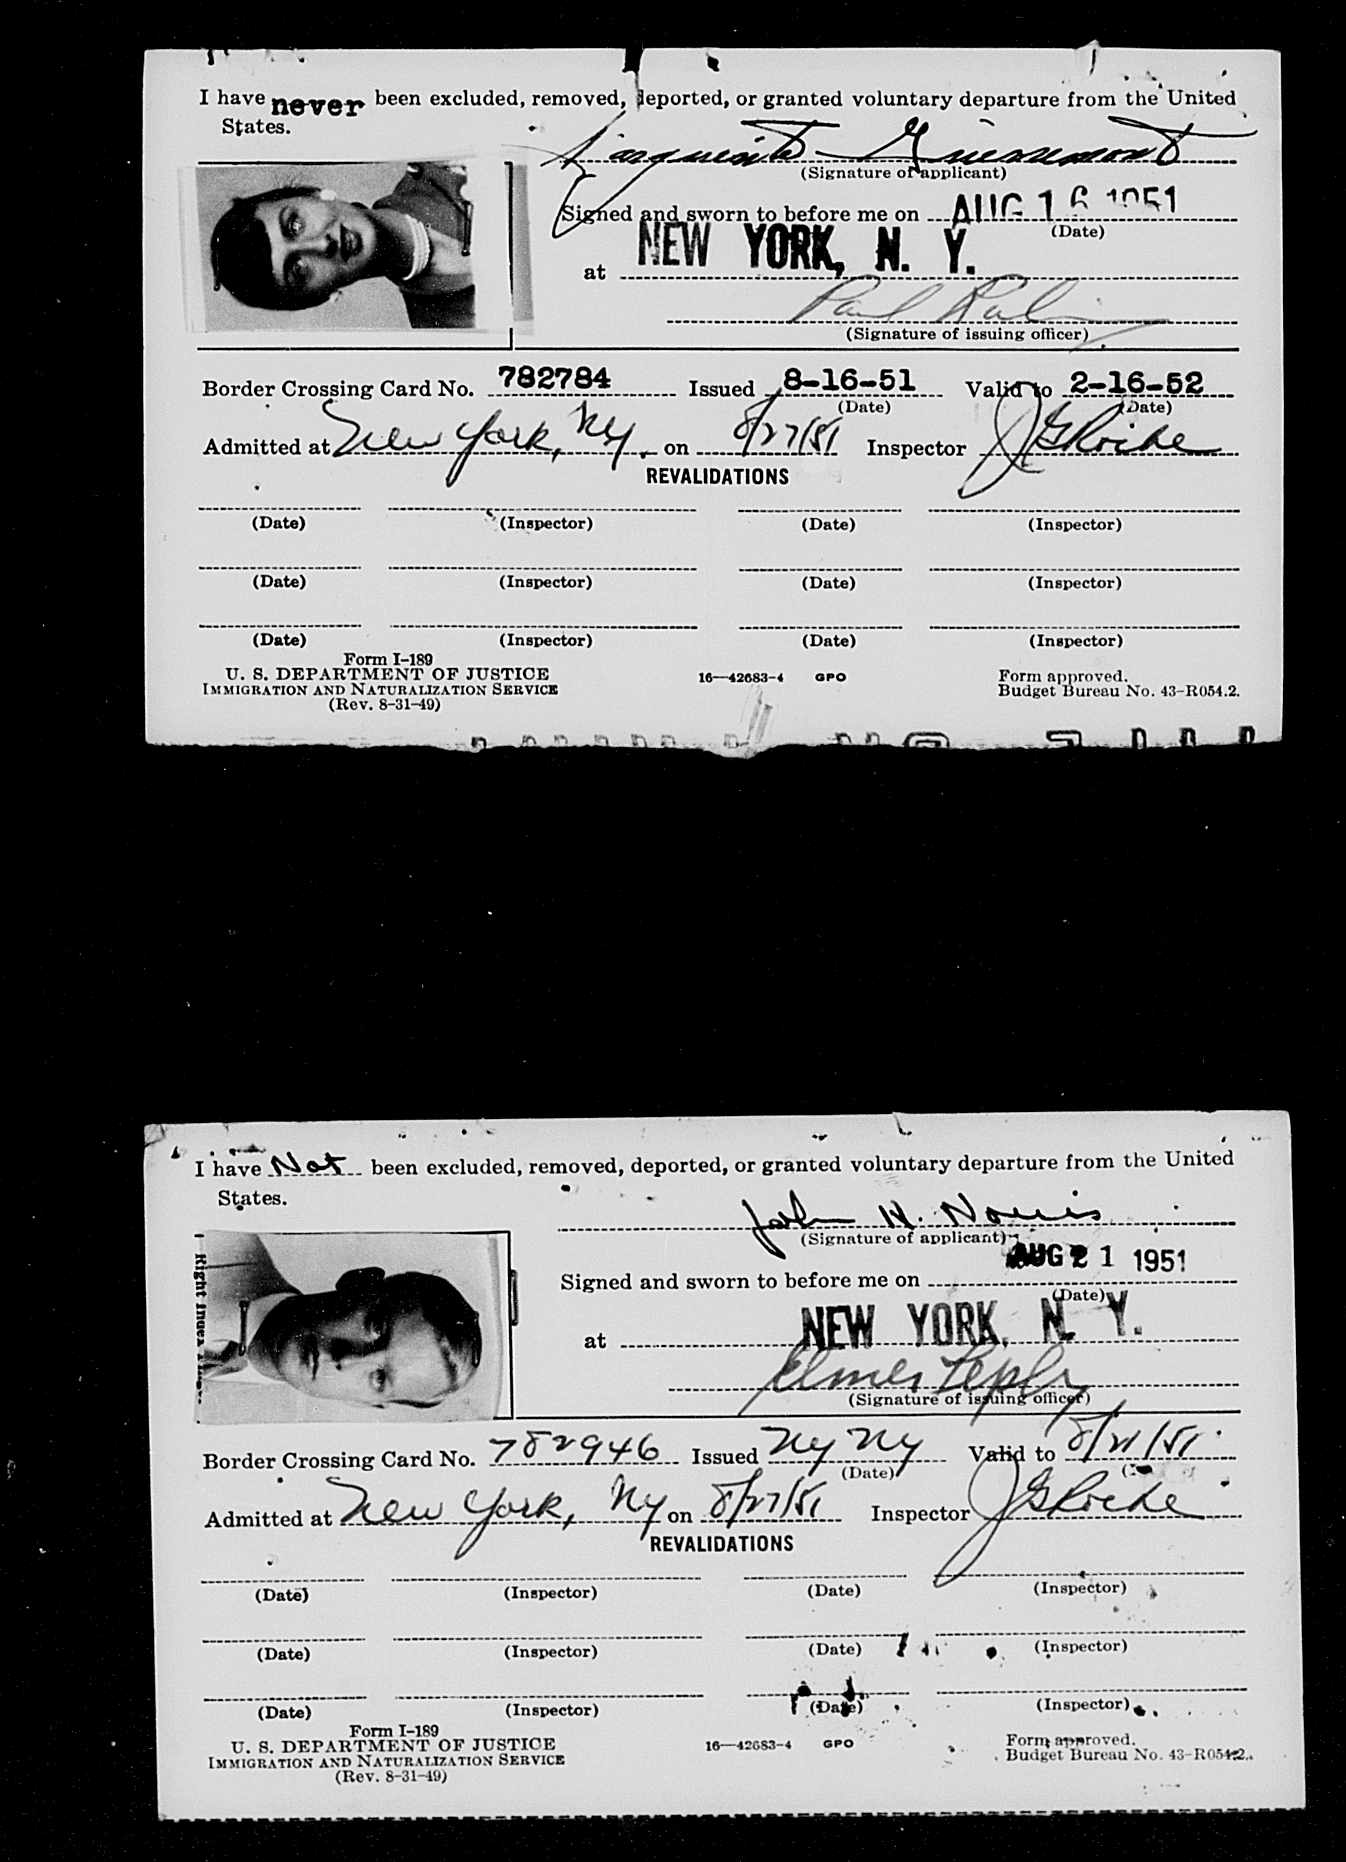 I have never been excluded, removed, deported, or granted voluntary departure from the United
States.
(Signature of applicant)
Signed and sworn to before me on AUG 16 1951
(Date)
at NEW YORK, N. Y.
Paul
(Signature of issuing officer)
Border Crossing Card No. 782784 Issued 8-16-51 Valid to 2-16-52
(Date) (Date)
Admitted at New York, NY. on 8/27/51 Inspector
REVALIDATIONS
(Date) (Inspector) (Date) (Inspector)
(Date) (Inspector) (Date) (Inspector)
(Date) (Inspector) (Date) (Inspector)
Form I-189
U. S. DEPARTMENT OF JUSTICE 16—42683-4 GPO Form approved.
IMMIGRATION AND NATURALIZATION SERVICE Budget Bureau No. 43-R054.2.
(Rev. 8-31-49)
I have Not been excluded, removed, deported, or granted voluntary departure from the United
States.
John H. Norris
(Signature of applicant)
Signed and sworn to before me on AUG 21 1951
(Date)
at NEW YORK, N. Y.
Elmer
(Signature of issuing officer)
Right Index
Border Crossing Card No. 782946 Issued NY NY Valid to 8/21/51
(Date)
Admitted at New York, NY on 8/27/51 Inspector
REVALIDATIONS
(Date) (Inspector) (Date) (Inspector)
(Date) (Inspector) (Date) (Inspector)
(Date) (Inspector) (Date) (Inspector)
Form I-189
U. S. DEPARTMENT OF JUSTICE 16—42683-4 GPO Form approved.
IMMIGRATION AND NATURALIZATION SERVICE Budget Bureau No. 43-R054.2.
(Rev. 8-31-49)